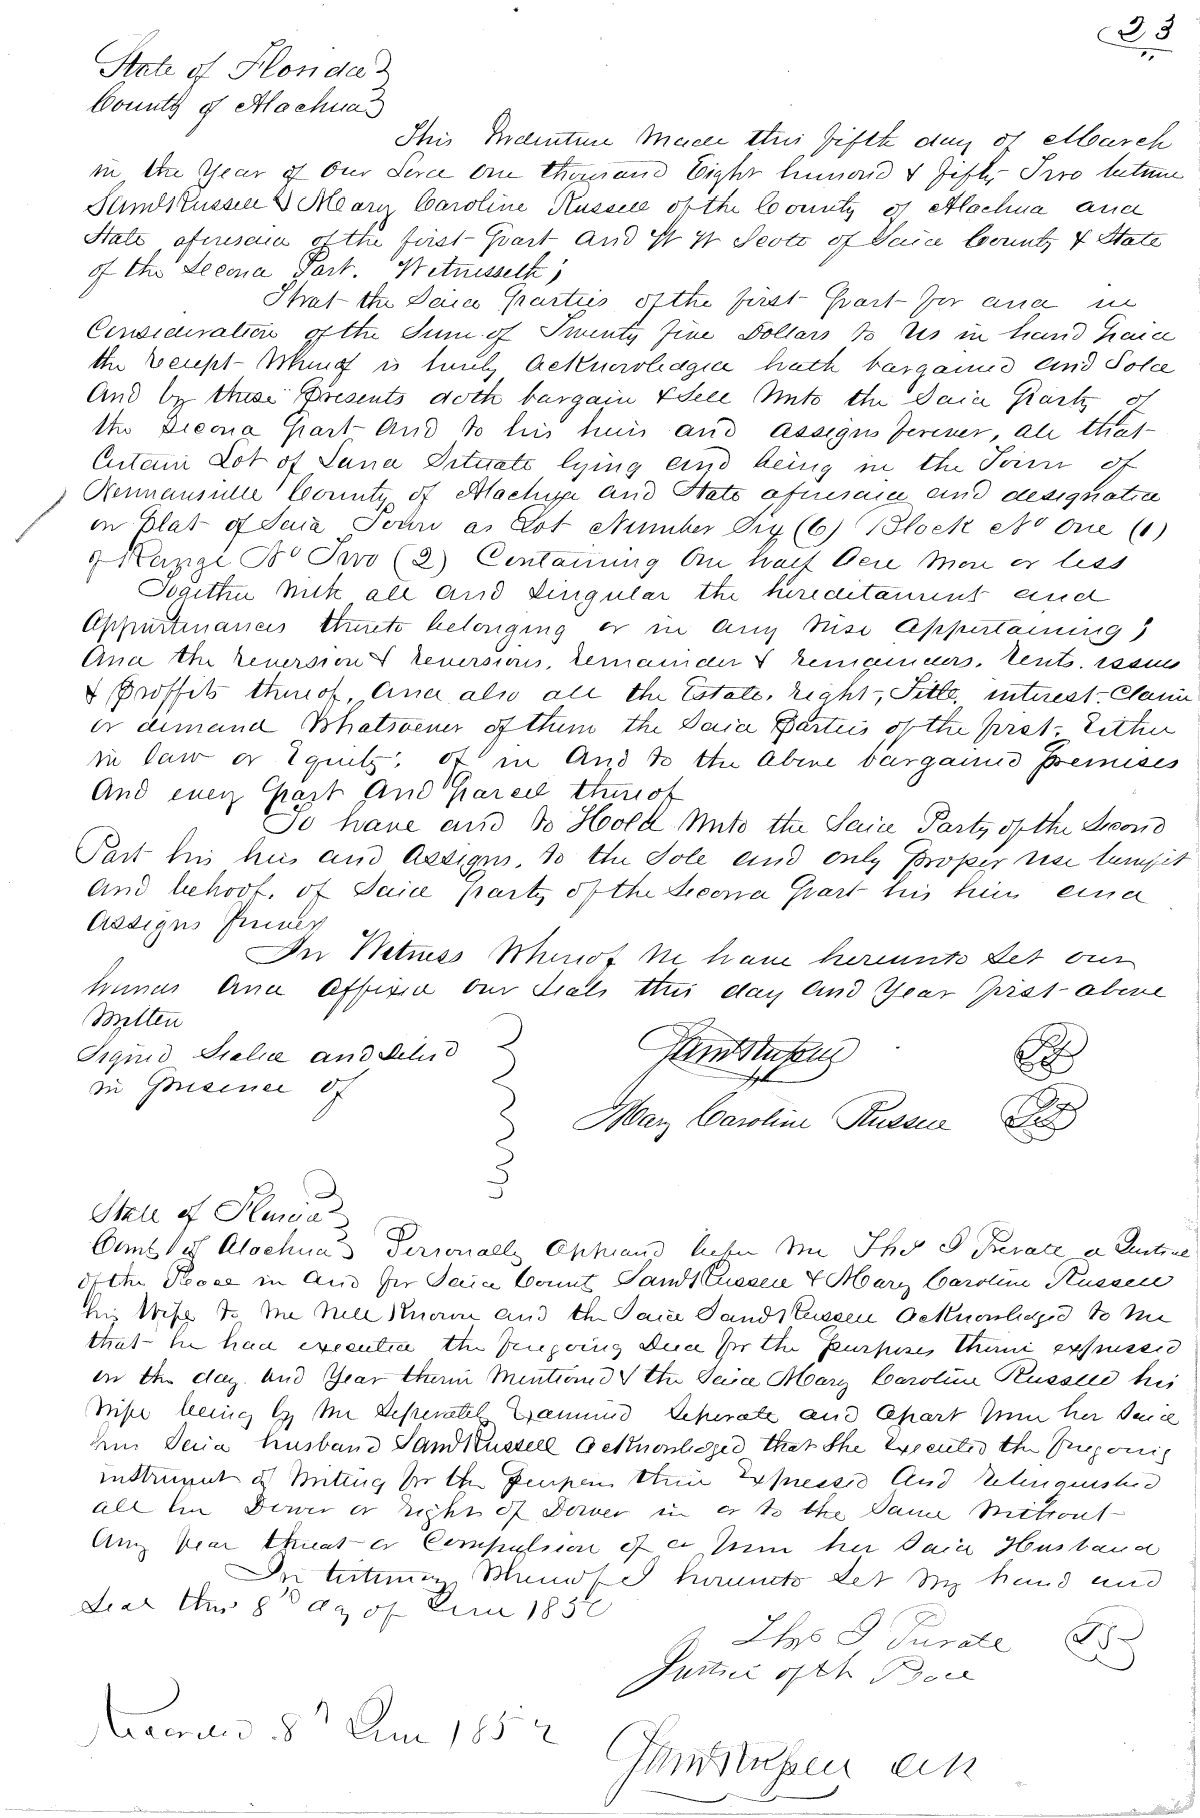 23
State of Florida
County of Alachua
This Indenture Made this fifth day of March
in the Year of Our Lord One thousand Eight hundred & fifty Two between
Saml Russell & Mary Caroline Russell of the County of Alachua and
State aforesaid of the first Part and W W Scott of Said County & State
of the Second Part. Witnesseth;
That the Said Parties of the first Part for and in
Consideration of the Sum of Twenty five Dollars to us in hand Paid
the receipt Whereof is hereby acknowledged hath bargained and Sold
And by these Presents doth bargain & Sell Unto the Said Party of
the Second Part And to his heirs and assigns forever, all that
Certain Lot of Land Situate lying and being in the Town of
Newnansville County of Alachua and State aforesaid and designated
on Plat of Said Town as Lot Number Six (6) Block No One (1)
of Range No Two (2) Containing One half Acre More or less
Together with all and Singular the hereditament and
Appurtenances thereto belonging or in any wise appertaining;
And the reversion & reversions, remainder & remainders, rents, issues
& Proffits thereof, And also all the Estate, right, Title, interest Claim
or demand Whatsoever of them the Said Parties of the first, Either
in law or Equity; of in And to the above bargained Premises
And every Part And Parcel thereof
To have and to Hold Unto the Said Party of the Second
Part his heirs and assigns, to the Sole and only Proper use benefit
and behoof, of Said Party of the Second Part his heirs and
assigns forever
In Witness Whereof We have hereunto Set our
hands And affixed our Seals this day and Year first above
Written
Signed Sealed and Delivd
in Presence of
Saml Russell
Mary Caroline Russell
State of Florida
County of Alachua Personally Appeared before Me Thos I Prevatt a Justice
of the Peace in and for Said County Saml Russell & Mary Caroline Russell
his Wife to Me Well Known and the Said Saml Russell Acknowledged to Me
that he had executed the foregoing Deed for the Purposes therein expressed
on the day and Year therein Mentioned & the Said Mary Caroline Russell his
Wife being by Me Seperately Examined Seperate and apart from her Said
her Said husband Saml Russell Acknowledged that She Executed the foregoing
instrument of Writing for the Purposes therein Expressed And relinquished
all her Dower or right of Dower in or to the Same Without
Any fear threat or Compulsion of or from her Said Husband
In testimony Whereof I hereunto Set My hand and
Seal this 8th day of June 1852
Thos I Prevatt
Justice of th Peace
Recorded 8th June 1852
Saml Russell Clk